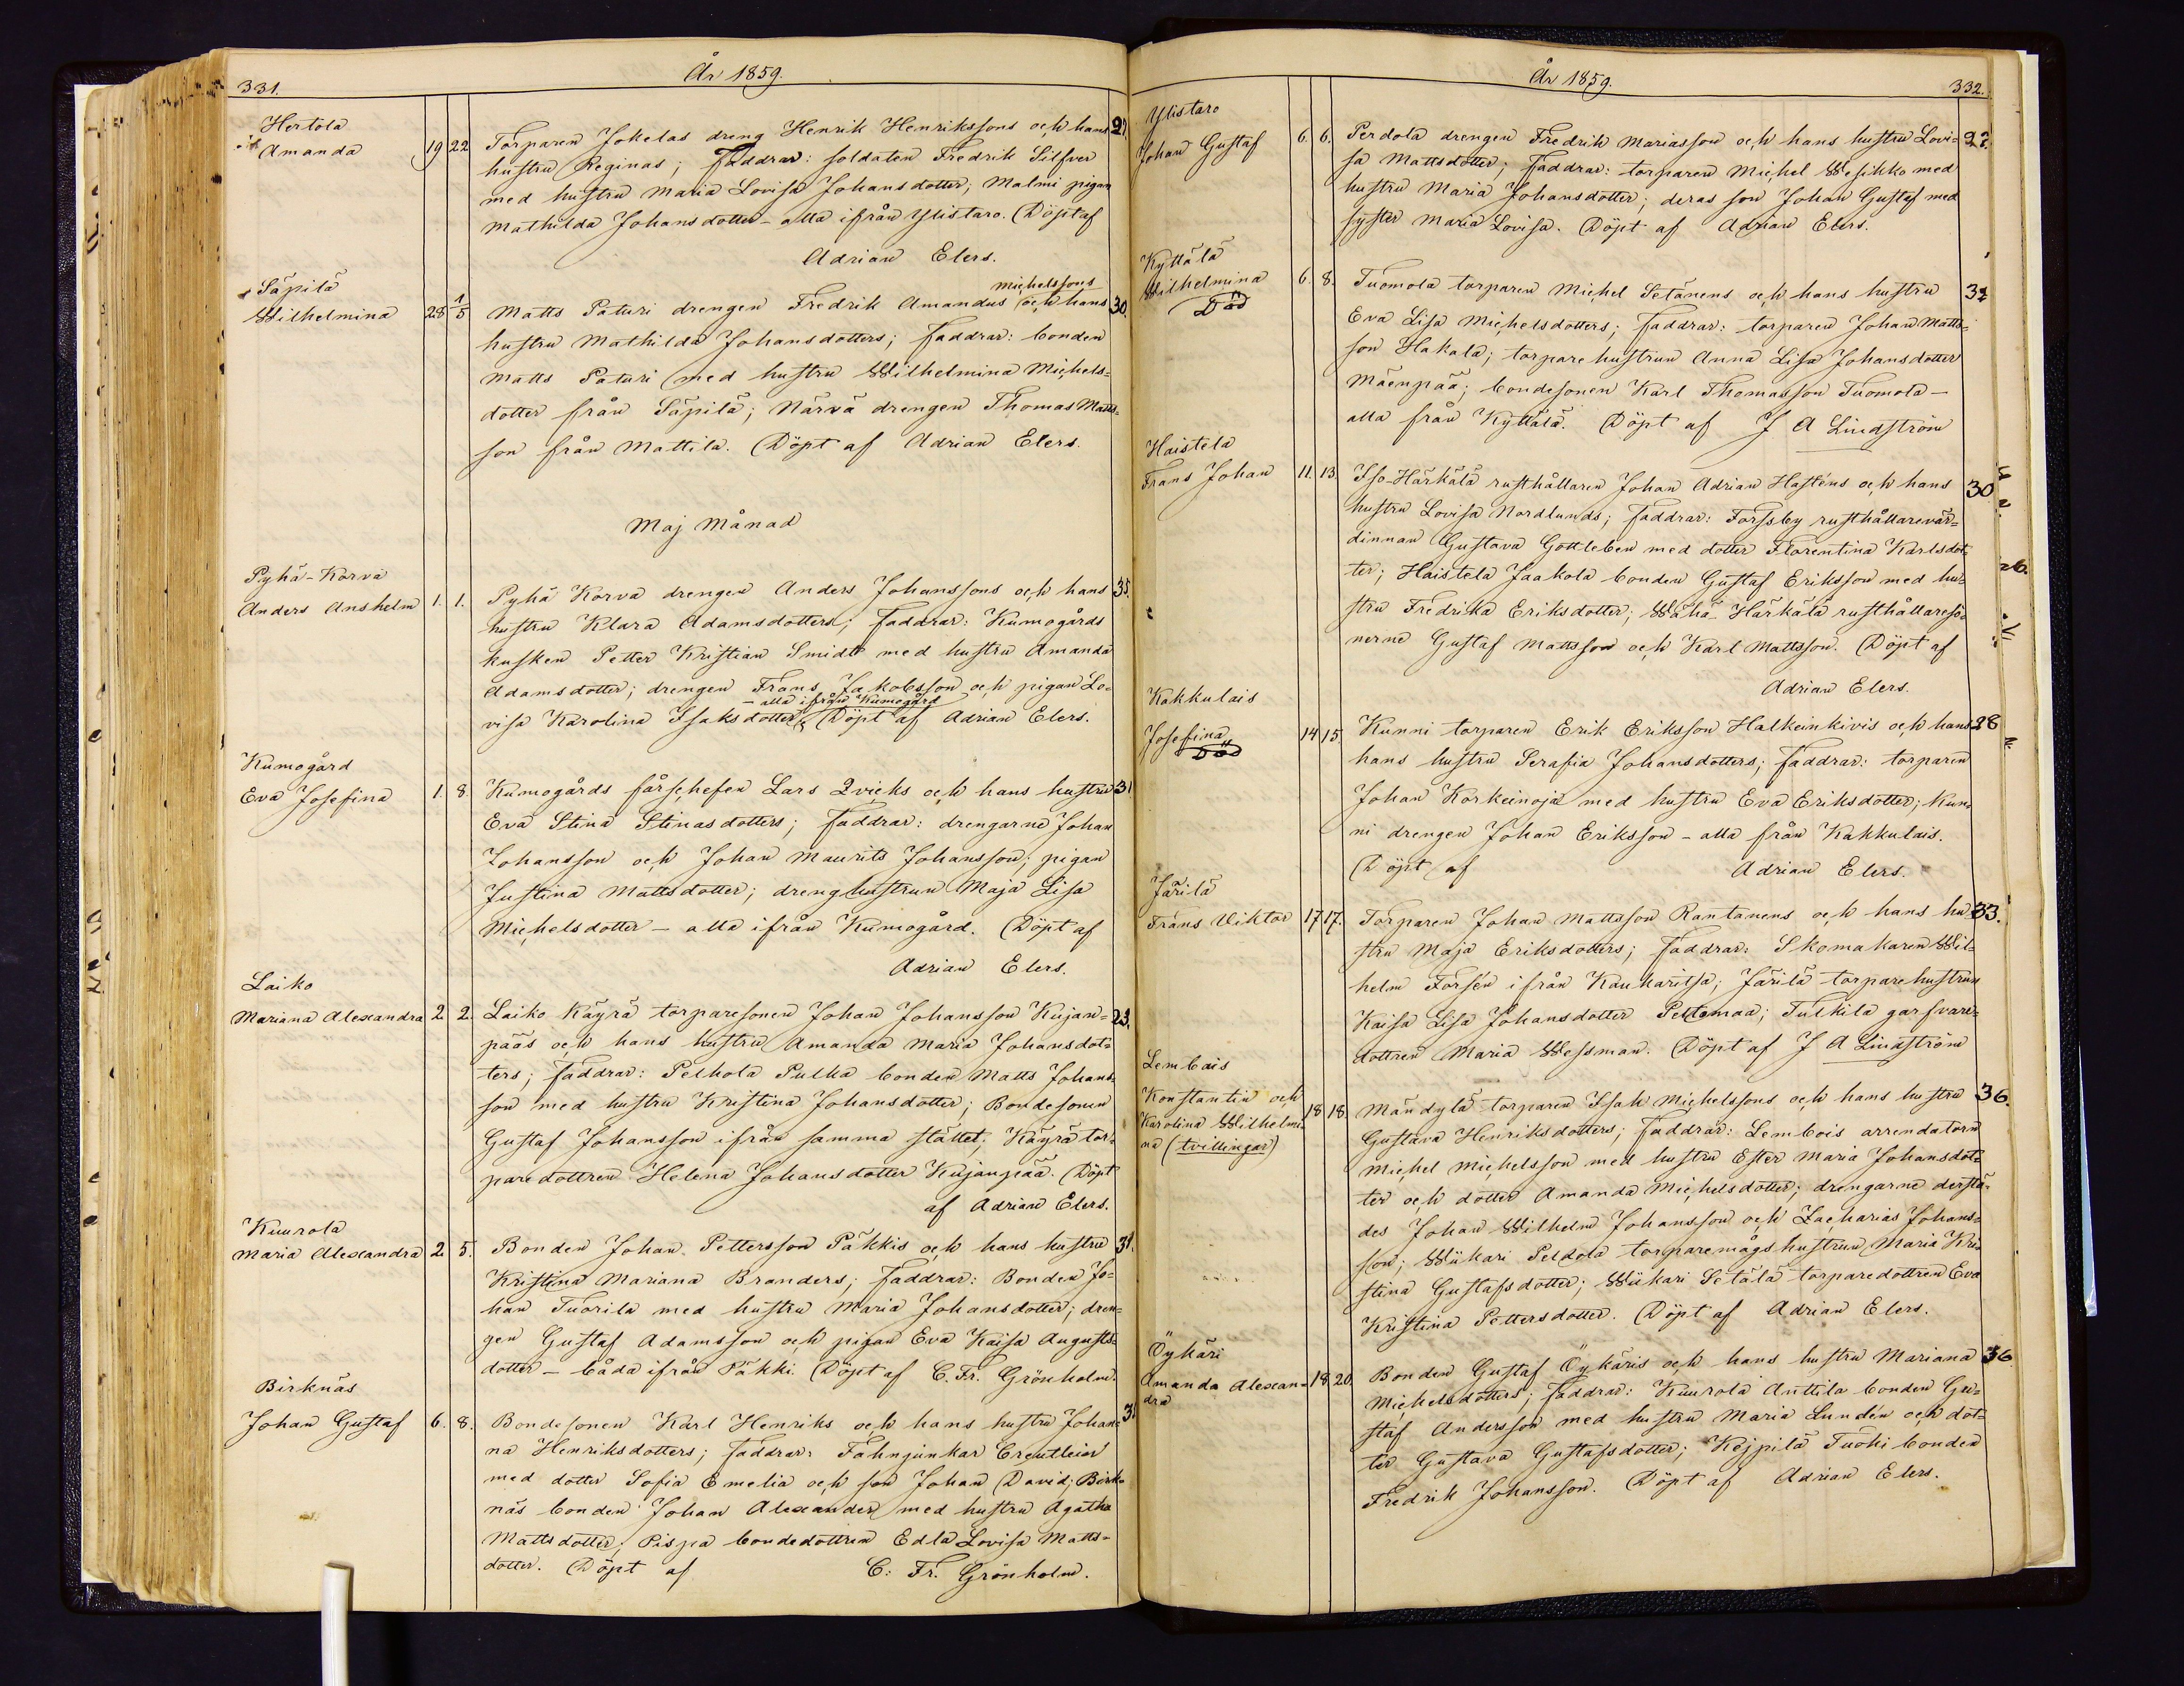 331.
År 1859.
Hertola
Amanda
19 22
Torparen Jokelas dreng Henrik Henrikssons och hans
hustru Reginas; Faddrar: soldaten Fredrik Silfver
med hustru Maria Lovisa Johansdotter; Malmi pigan
Mathilda Johansdotter – alla ifrån Ylistaro. Döpt af
Adrian Elers.
Säpilä
Wilhelmina
28 1/5
michelssons
Matts Paturi drengen Fredrik Amandus och hans
30.
hustru Mathilda Johansdotters; faddrar: bonden
Matts Paturi med hustru Wilhelmina Michels-
dotter från Säpilä; Närvä drengen Thomas Matts-
son från Mattila. Döpt af Adrian Elers.
Maj Månad
Pyhä-Korva
Anders Anshelm
1. 1.
Pyhä Korva drengen Anders Johanssons och hans
35.
hustru Klara Adamsdotters; Faddrar: Kumogårds
kusken Petter Kristian Smidt med hustru Amanda
Adamsdotter; drengen Frans Jakobsson och pigan Lo-
– alla ifrån Kumogård
visa Karolina Isaksdotter. Döpt af Adrian Elers.
Kumogård
Eva Josefina
1. 8.
Kumogårds fårschefen Lars Qvicks och hans hustru
31
Eva Stina Stinasdotters; Faddrar: drengarne Johan
Johansson och Johan Maurits Johansson; pigan
Justina Mattsdotter; drenghustrun Maja Lisa
Michelsdotter – alla ifrån Kumogård. Döpt af
Adrian Elers.
Laiko
Mariana Alexandra
2. 2.
Laiko Käyrä torparesonen Johan Johansson Kujan-
23.
pääs och hans hustru Amanda Maria Johansdot-
ters; faddrar: Pelhola Pulha bonden Matts Johans-
son med hustru Kristina Johansdotter; Bondesonen
Gustaf Johansson ifrån samma stället; Käyrä tor-
paredottren Helena Johansdotter Kujanpää. Döpt
af Adrian Elers.
Kuurola
Maria Alexandra
2 5.
Bonden Johan Pettersson Päkkis och hans hustru
31.
Kristina Mariana Branders; faddrar: Bonden Jo-
han Tuorila med hustru Maria Johansdotter; dren-
gen Gustaf Adamsson och pigan Eva Kaisa Augusts-
dotter – båda ifrån Päkki. Döpt af C. Fr. Grönholm.
Birknäs
Johan Gustaf
6. 8.
Bondesonen Karl Henriks och hans hustru Johan-
na Henriksdotters; faddrar: Fahnjunkar Creutlein
med dotter Sofia Emelia och son Johan David; Birk-
näs bonden Johan Alexander med hustru Agatha
Mattsdotter; Pispa bondedottren Edla Lovisa Matts-
dotter. Döpt af
C: Fr. Grönholm.
År 1859.
332.
Ylistaro
Johan Gustaf
6. 6.
Perdola drengen Fredrik Mariasson och hans hustru Lovi-
22.
sa Mattsdotter; Faddrar: torparen Michel Wesikko med
hustru Maria Johansdotter; deras son Johan Gustaf med
syster Maria Lovisa. Döpt af Adrian Elers.
Kyttälä
Wilhelmina
Död
6. 8.
Tuomola torparen Michel Setänens och hans hustru
32
Eva Lisa Michelsdotters; Faddrar: torparen Johan Matts-
son Hakala; torparehustrun Anna Lisa Johansdotter
Mäenpää; bondesonen Karl Thomasson Tuomola –
alla från Kyttälä. Döpt af J A Lindström
Haistela
Frans Johan
11. 13.
Iso-Härkälä rusthållaren Johan Adrian Hasténs och hans
30
hustru Lovisa Nordlunds; faddrar: Forssby rusthållarevär-
dinnan Gustava Gottleben med dotter Florentina Karlsdot-
ter; Haistela Jaakola bonden Gustaf Eriksson med hu-
stru Fredrika Eriksdotter; Wähä-Härkälä rusthållaresö-
nerne Gustaf Mattsson och Karl Mattsson. Döpt af
Adrian Elers.
Kakkulais
Josefina
Död
14 15.
Kunni torparen Erik Eriksson Halkeinkivis och hans
28
hans hustru Serafia Johansdotters; faddrar: torparen
Johan Korkeinoja med hustru Eva Eriksdotter; Kun-
ni drengen Johan Eriksson – alla från Kakkulais.
Döpt af
Adrian Elers.
Järilä
Frans Viktor
17 17.
Torparen Johan Mattsson Rantanens och hans hu-
33.
stru Maja Eriksdotters; faddrar: Skomakaren Wil-
helm Forsén ifrån Kaukaritsa; Järilä torparehustrun
Kaisa Lisa Johansdotter Peltomaa; Tulkila garfvare-
dottren Maria Wessman. Döpt af J A Lindström
Lembois
Konstantin och
Karolina Wilhelmi-
na (tvillingar)
18 18.
Mändylä torparen Isak Michelssons och hans hustru
36.
Gustava Henriksdotters; faddrar: Lembois arrendatorn
Michel Michelsson med hustru Ester Maria Johansdot-
ter och dotter Amanda Michelsdotter; drengarne derstä-
des Johan Wilhelm Johansson och Zacharias Johans-
son; Wiikari Peldola torparemågshustrun Maria Kri-
stina Gustafsdotter; Wiikari Setälä torparedottren Eva
Kristina Pettersdotter. Döpt af Adrian Elers.
Öykäri
Amanda Alexan-
dra
18 20.
Bonden Gustaf Öykäris och hans hustru Mariana
36
Michelsdotters; faddrar: Kuurola Anttila bonden Gu-
staf Andersson med hustru Maria Lundén och dot-
ter Gustava Gustafsdotter; Kejpilä Tuohi bonden
Fredrik Johansson. Döpt af Adrian Elers.